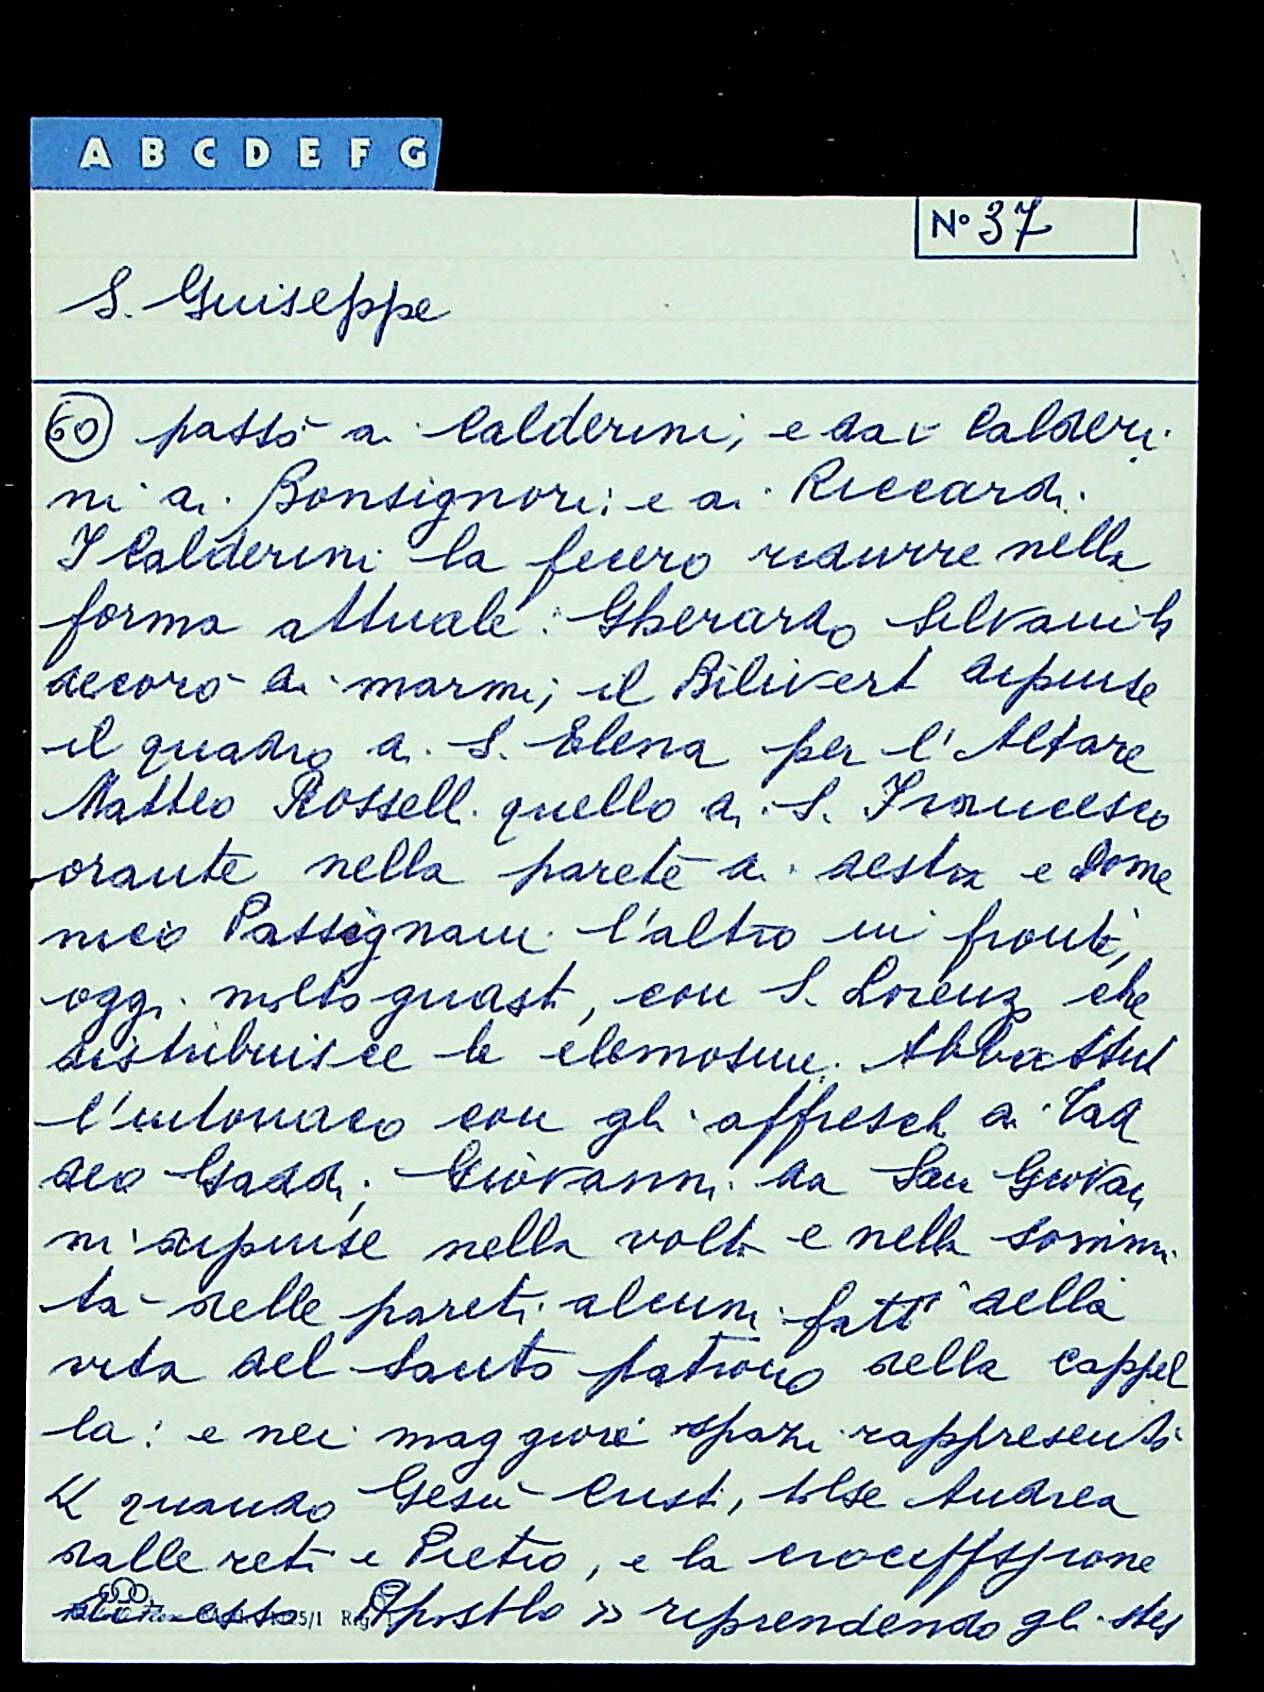 A B C D E F G
Nº 37
S. Guiseppe
60 passò ai Calderini, e dai Calderi
ni ai Bonsignori: e ai Riccardi.
I Calderini la fecero ridurre nella
forma attuale: Gherardo Silvani la
decorò di marmi; il Bilivert dipinse
il quadro di S. Elena per l'Altare
Matteo Rosselli quello di S. Francesco
orante nella parete di destra e Dome
nico Passignani l'altro in fronte,
oggi molto guasti, con S. Lorenzo che
distribuisce le elemosine. Abbattut
l'intonaco con gli affreschi di Tad
deo Gaddi; Giovanni da San Giovan
ni dipinse nella volta e nella sommi
tà delle pareti alcuni fatti della
vita del Santo patrono della cappel
la: e nei maggiori spazi rappresentò
quando Gesù Cristi, tolse Andrea
dalle reti e Pietro, e la crociffissione
di esso Apostolo » riprendendo gli stes